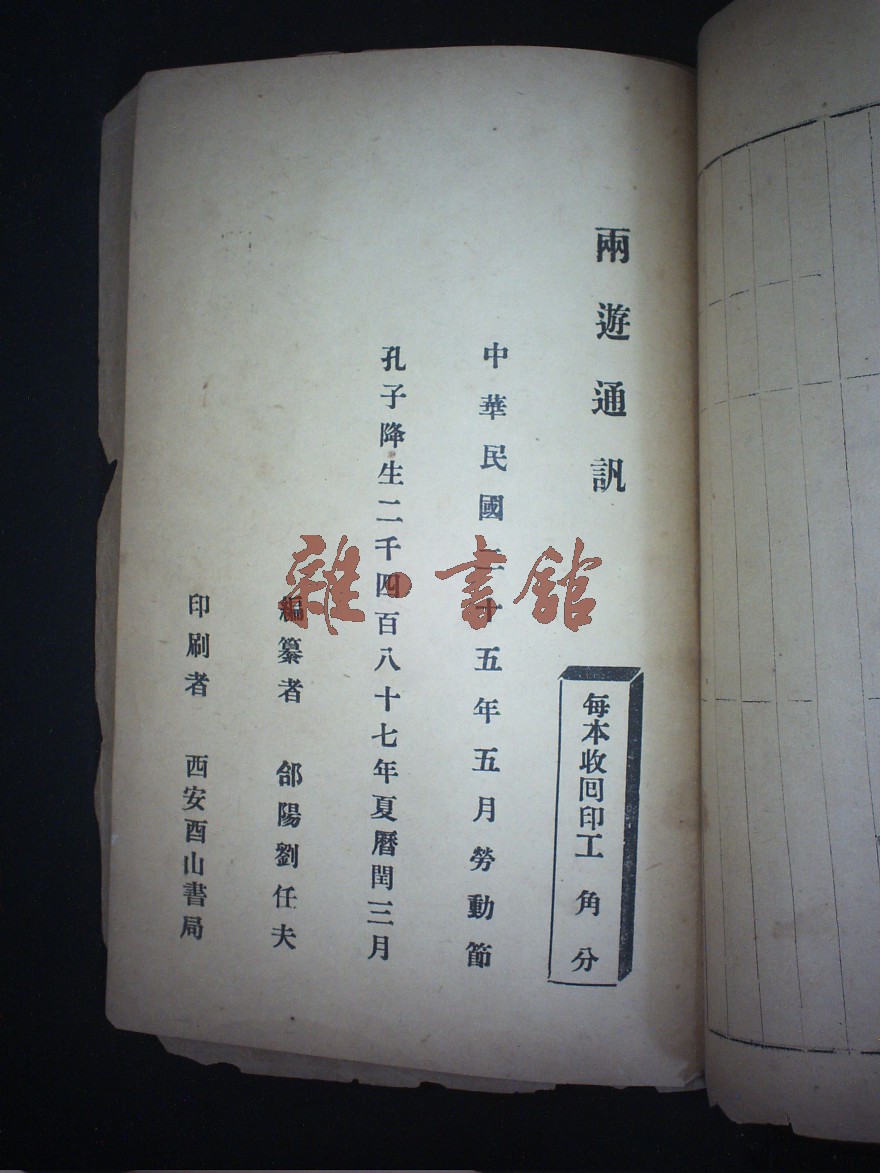 兩遊通訊
每本收回印工 角 分
中華民國二十五年五月勞動節
孔子降生二千四百八十七年夏曆閏三月
編纂者 郃陽劉任夫
印刷者 西安酉山書局
雜·書館